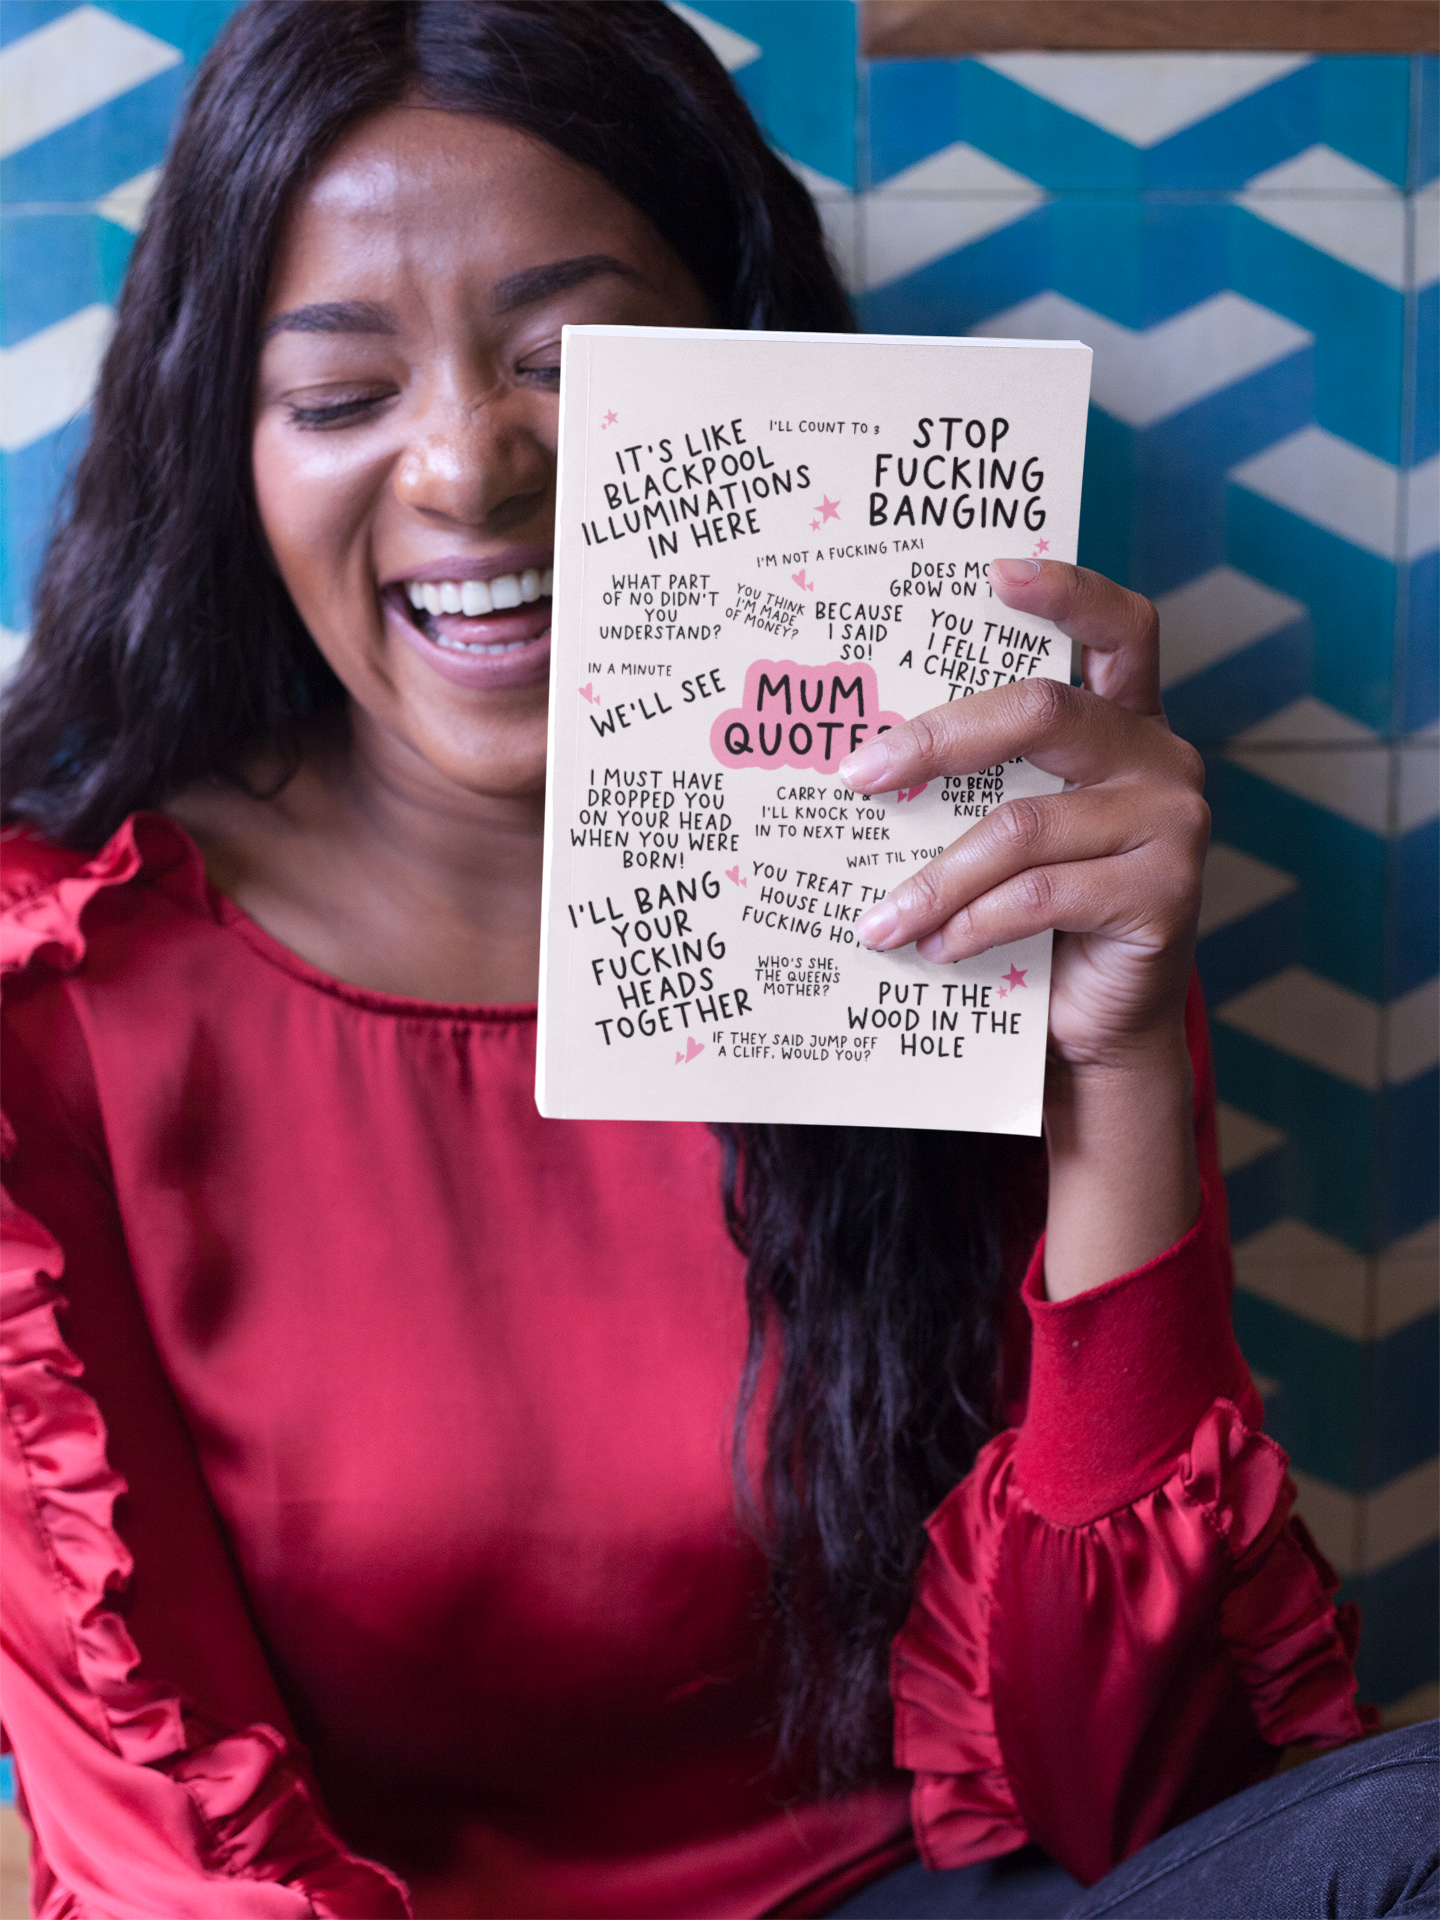 I'LL COUNT TO 3
IT'S LIKE
BLACKPOOL
ILLUMINATIONS
IN HERE
STOP
FUCKING
BANGING
I'M NOT A FUCKING TAXI
DOES
GROW ON
WHAT PART
OF NO DIDN'T
YOU
UNDERSTAND?
YOU THINK
I'M MADE
OF MONEY?
BECAUSE
I SAID
SO!
YOU THINK
I FELL OFF
A
IN A MINUTE
WE'LL SEE
MUM
I MUST HAVE
DROPPED YOU
ON YOUR HEAD
WHEN YOU WERE
BORN!
CARRY ON &
I'LL KNOCK YOU
IN TO NEXT WEEK
TO BEND
OVER MY
KNEE
WAIT TIL YOUR
YOU TREAT
HOUSE LIKE
FUCKING
I'LL BANG
YOUR
FUCKING
HEADS
TOGETHER
WHO'S SHE,
THE QUEENS
MOTHER?
PUT THE
WOOD IN THE
HOLE
IF THEY SAID JUMP OFF
A CLIFF, WOULD YOU?